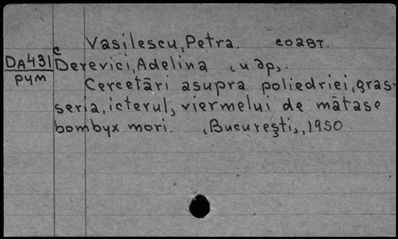 Vasilescu, Petra. соавт.
DA431 c Derevici, Adelina и др.
рум Cercetări asupra poliedriei, gras-
seria, icterul, viermelui de mătase
bombyx mori. Bucureşti, 1950